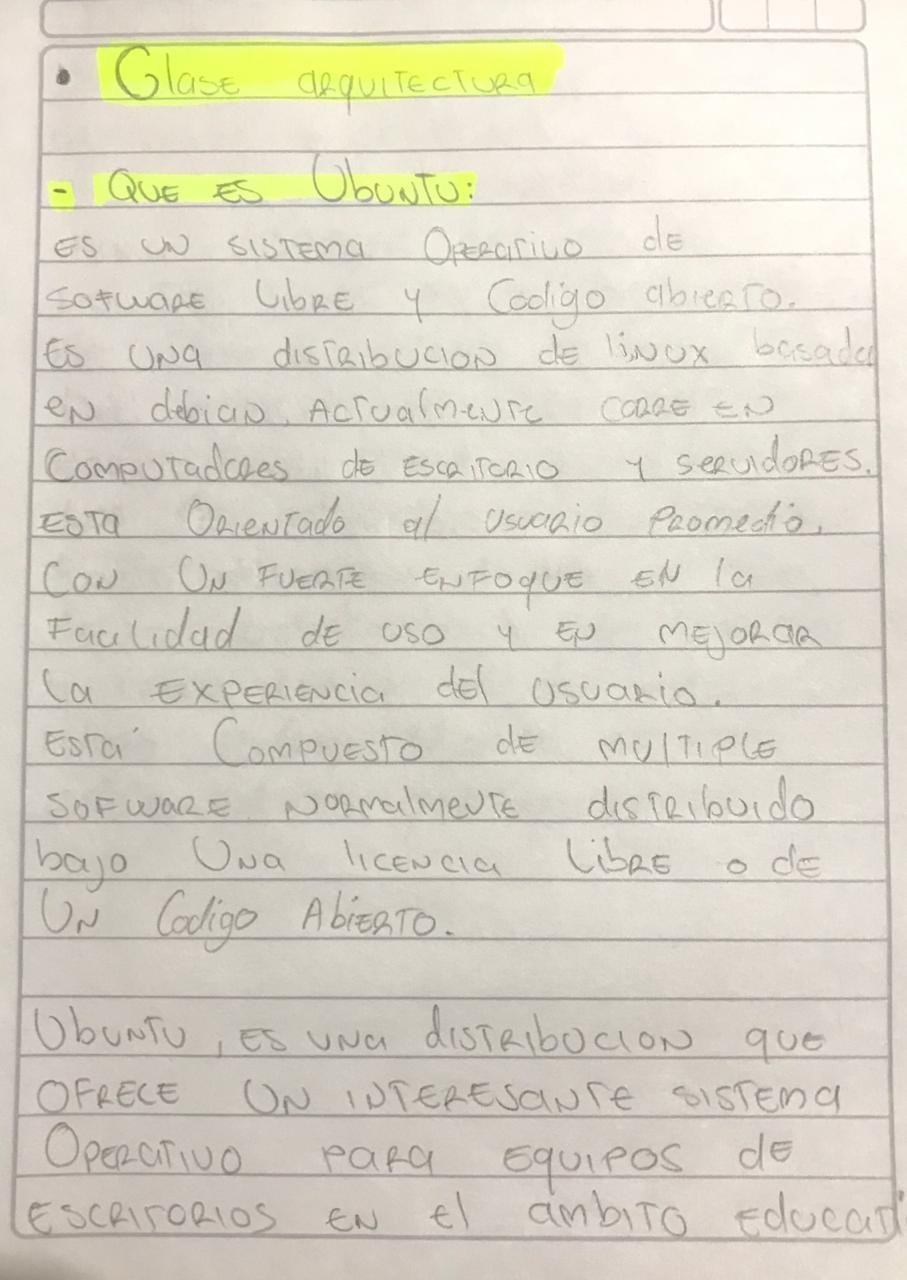 • Clase arquitectura
- Que es Ubuntu:
es un sistema Operativo de
Sofware Libre y Codigo abierto.
Es una distribucion de linux basada
en debian. Actualmente corre en
Computadores de escritorio y servidores.
esta Orientado al usuario Promedio,
Con Un fuerte enfoque en la
Facilidad de uso y en mejorar
la experiencia del usuario.
Está Compuesto de multiple
sofware normalmente distribuido
bajo Una licencia libre o de
Un Codigo Abierto.
Ubuntu, es una distribucion que
ofrece Un interesante sistema
Operativo para equipos de
escritorios en el ámbito educati